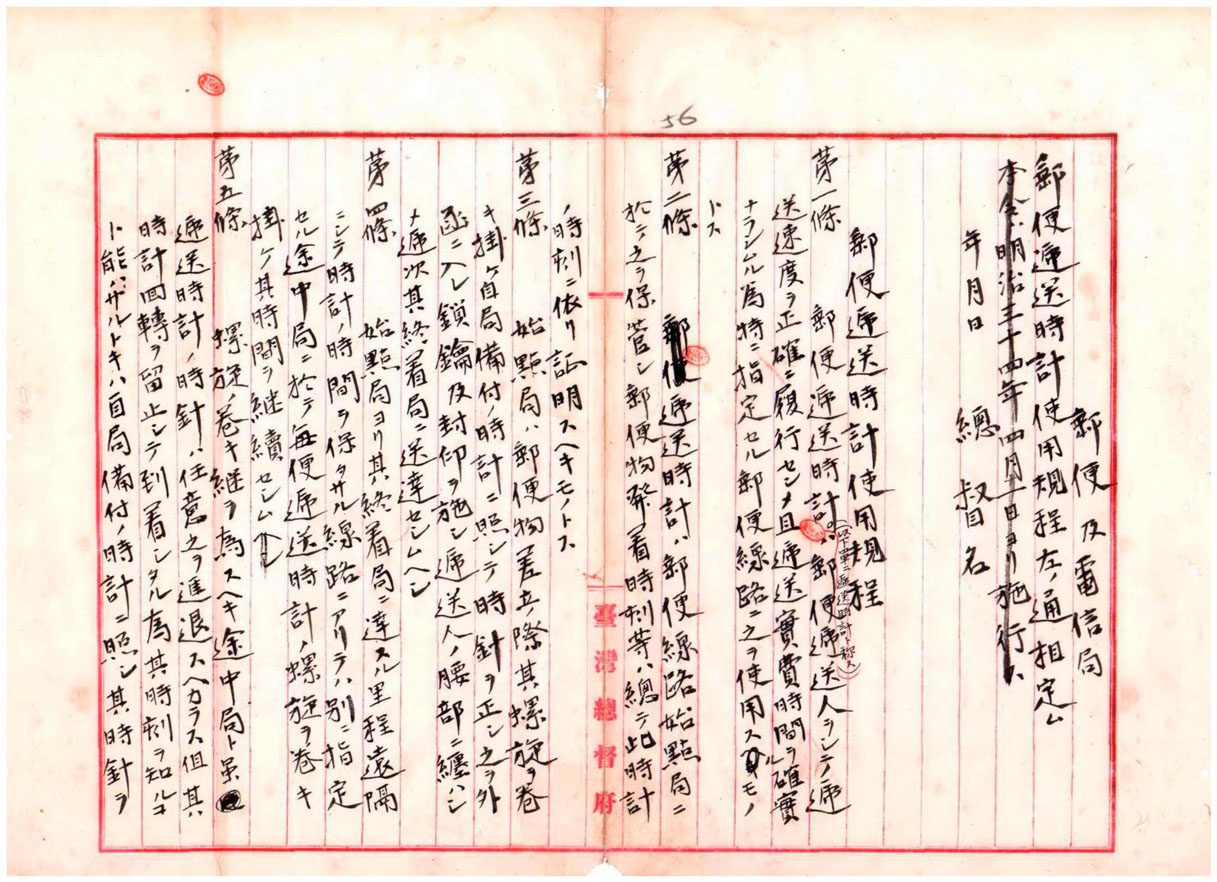 56
郵便及電信局
郵便遞送時計使用規程左ノ通相定ム
本令ハ明治三十四年四月一日ヨリ施行ス
年月日　總督名
郵便遞送時計使用規程
第一條　郵便遞送時計(以下單ニ遞送時計ト称ス)ハ郵便遞送人ヲシテ遞
送速度ヲ正確ニ履行セシメ且遞送實費時間ヲ確實
ナラシムル為特ニ指定セル郵便線路ニ之ヲ使用スルモノ
トス
第二條　遞送時計ハ郵便線路始點局ニ
於テ之ヲ保管シ郵便物發着時刻等ハ總テ此時計
ノ時刻ニ依リ証明スヘキモノトス
臺灣總督府
第三條　始點局ハ郵便物差立ノ際其螺旋ヲ卷
キ掛ケ自局備付ノ時計ニ照シテ時針ヲ正シ之ヲ外
函ニ入レ鎖鑰及封印ヲ施シ遞送人ノ腰部ニ纏ハシ
メ遞次其終着局ニ送達セシムヘシ
第四條　始點局ヨリ其終着局ニ達スル里程遠隔
ニシテ時計ノ時間ヲ保タサル線路ニアリテハ別ニ指定
セル途中局ニ於テ每便遞送時計ノ螺旋ヲ卷キ
掛ケ其時間ヲ継續セシムヘシ
第五條　螺旋ノ卷キ継ヲ為スヘキ途中局ト雖
遞送時計ノ時針ハ任意之ヲ進退スヘカラス但其
時計回轉ヲ留止シテ到着シタル為其時刻ヲ知ルコ
ト能ハサルトキハ自局備付ノ時計ニ照シ其時針ヲ